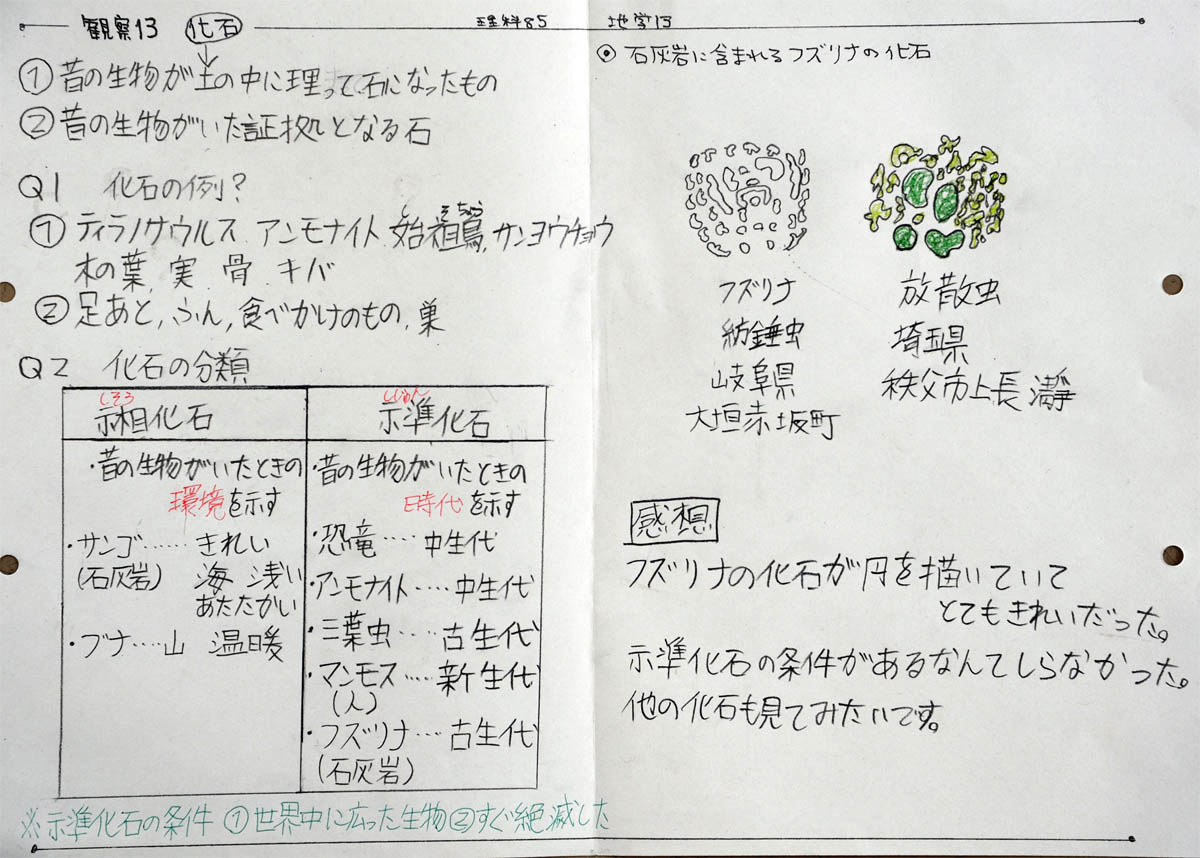 観察13 化石 理科85 地学13
①昔の生物が土の中に埋って石になったもの
②昔の生物がいた証拠となる石
Q1 化石の例?
①ティラノサウルス アンモナイト 始祖鳥, サンヨウチュウ
そちょう
木の葉, 実 骨 キバ
②足あと, ふん, 食べかけのもの, 巣
Q2 化石の分類
しそう
示相化石
・昔の生物がいたときの
環境を示す
・サンゴ……きれい
(石灰岩) 海 浅い
あたたかい
・ブナ……山 温暖
しじゅん
示準化石
・昔の生物がいたときの
時代を示す
・恐竜……中生代
・アンモナイト……中生代
・三葉虫……古生代
・マンモス……新生代
(人)
・フズリナ…古生代
(石灰岩)
※示準化石の条件 ①世界中に広った生物②すぐ絶滅した
◉ 石灰岩に含まれるフズリナの化石
フズリナ
紡錘虫
岐阜県
大垣赤坂町
放散虫
埼玉県
秩父市上長瀞
感想
フズリナの化石が円を描いていて
とてもきれいだった。
示準化石の条件があるなんてしらなかった。
他の化石も見てみたいです。